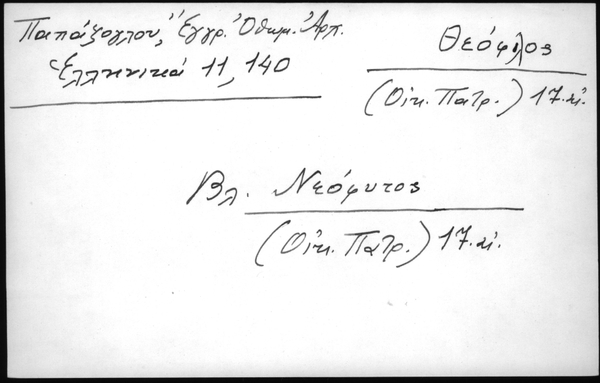 Παπάζογλου, Ἔγγρ. Ὀθωμ. Ἀρπ.
Ἑλληνικά 11, 140
Θεόφιλος
(Οἰκ. Πατρ.) 17. αἰ.
Βλ. Νεόφυτος
(Οἰκ. Πατρ.) 17. αἰ.